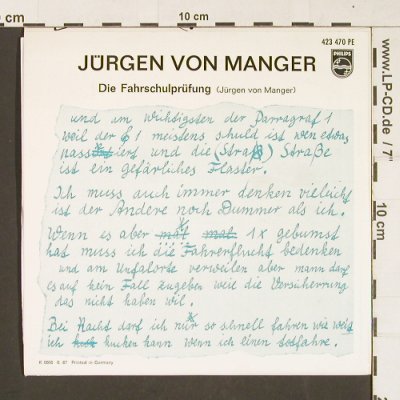 10 cm
423 470 PE
PHILIPS
JÜRGEN VON MANGER
Die Fahrschulprüfung (Jürgen von Manger)
und am wichtigsten der Parragraf 1
weil der § 1 meistens shuld ist wen etwas
passiert und die (Straß) Straße
ist ein gefärliches Flaster.
Ich muss auch immer denken vieleicht
ist der Andere noch Dummer als ich.
Wenn es aber mal mal 1x gebumst
hat muss ich die Fahrerflucht bedenken
und am Unfalorte verweilen aber mann darf
es auf kein Fall zugeben weil die Versicherrung
das nicht haben wil.
Bei Nacht darf ich nur so schnell fahren wie weit
ich kuken kann wenn ich einen totfahre.
Printed in Germany
www.LP-CD.de / 7"
10 cm